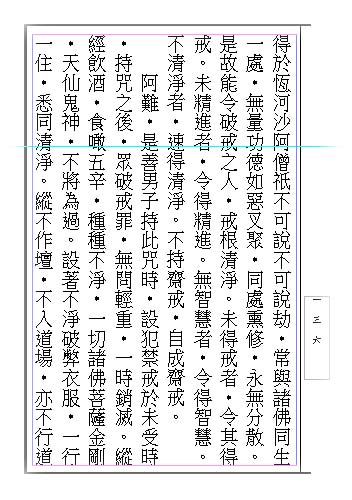 得於恆河沙阿僧祇不可說不可說劫．常與諸佛同生
一處．無量功德如惡叉聚．同處熏修．永無分散。
是故能令破戒之人．戒根清淨。未得戒者．令其得
戒。未精進者．令得精進。無智慧者．令得智慧。
不清淨者．速得清淨。不持齋戒．自成齋戒。
阿難．是善男子持此咒時．設犯禁戒於未受時
．持咒之後．眾破戒罪．無問輕重．一時銷滅。縱
經飲酒．食噉五辛．種種不淨．一切諸佛菩薩金剛
．天仙鬼神．不將為過。設著不淨破弊衣服．一行
一住．悉同清淨。縱不作壇．不入道場．亦不行道
一三六